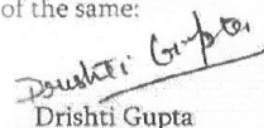 of the same:
Drishti Gupta
Drishti Gupta